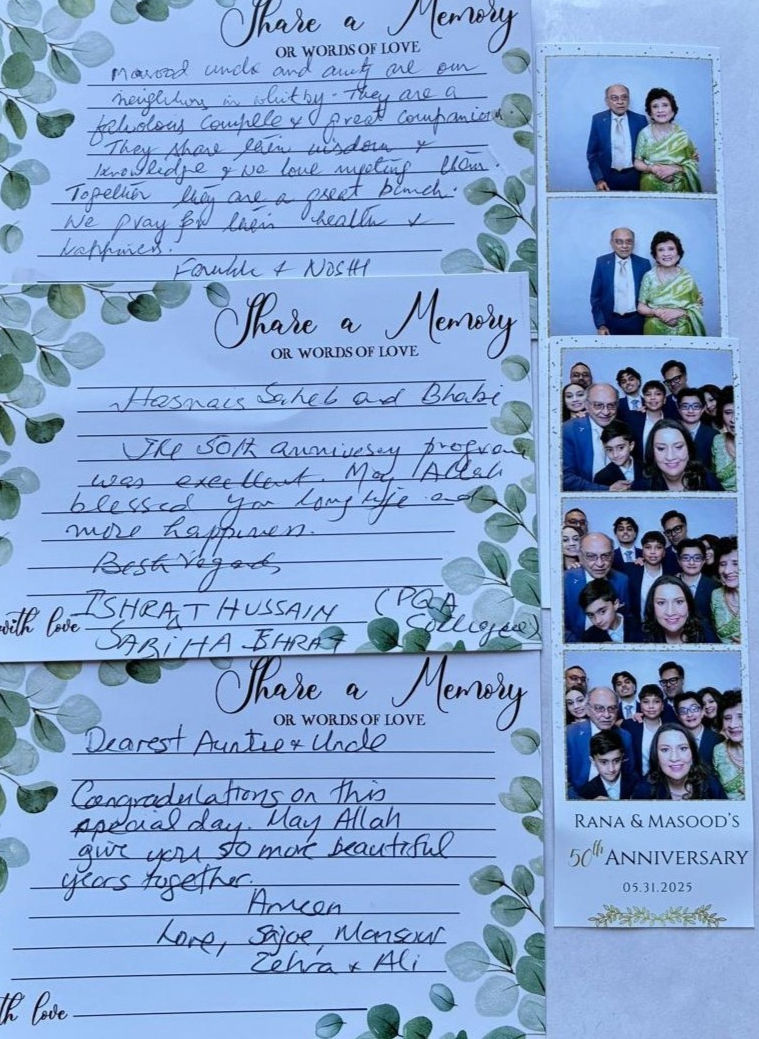 Share a Memory
OR WORDS OF LOVE
Masood uncle and aunty are our
neighbors in whitby. They are a
& great companions
They share their wisdom &
knowledge & we love meeting them.
Together they are a great bunch.
We pray for their health &
happiness.
& NOSHI
Share a Memory
OR WORDS OF LOVE
Saheb and Bhabi
The 50th annivesey program
was excellent. May Allah
blessed you long life and
more happiness.
Best regards
ISHRAT HUSSAIN (PQA
&
with love SABIHA ISHRAT
Share a Memory
OR WORDS OF LOVE
Dearest Auntie & Uncle
Congradulations on this
special day. May Allah
give you 50 more beautiful
years together.
Ameen
Love, Mansour
Zehra & Ali
th love
RANA & MASOOD'S
50th ANNIVERSARY
05.31.2025